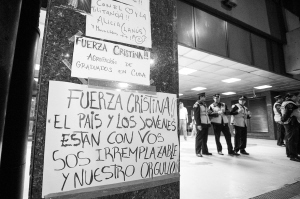 ALICIA
FUERZA CRISTINA!!!
GRADUADOS EN CUBA
FUERZA CRISTINA!!
EL PAÍS Y LOS JÓVENES
ESTAN CON VOS
SOS IRREMPLAZABLE
Y NUESTRO ORGULLO